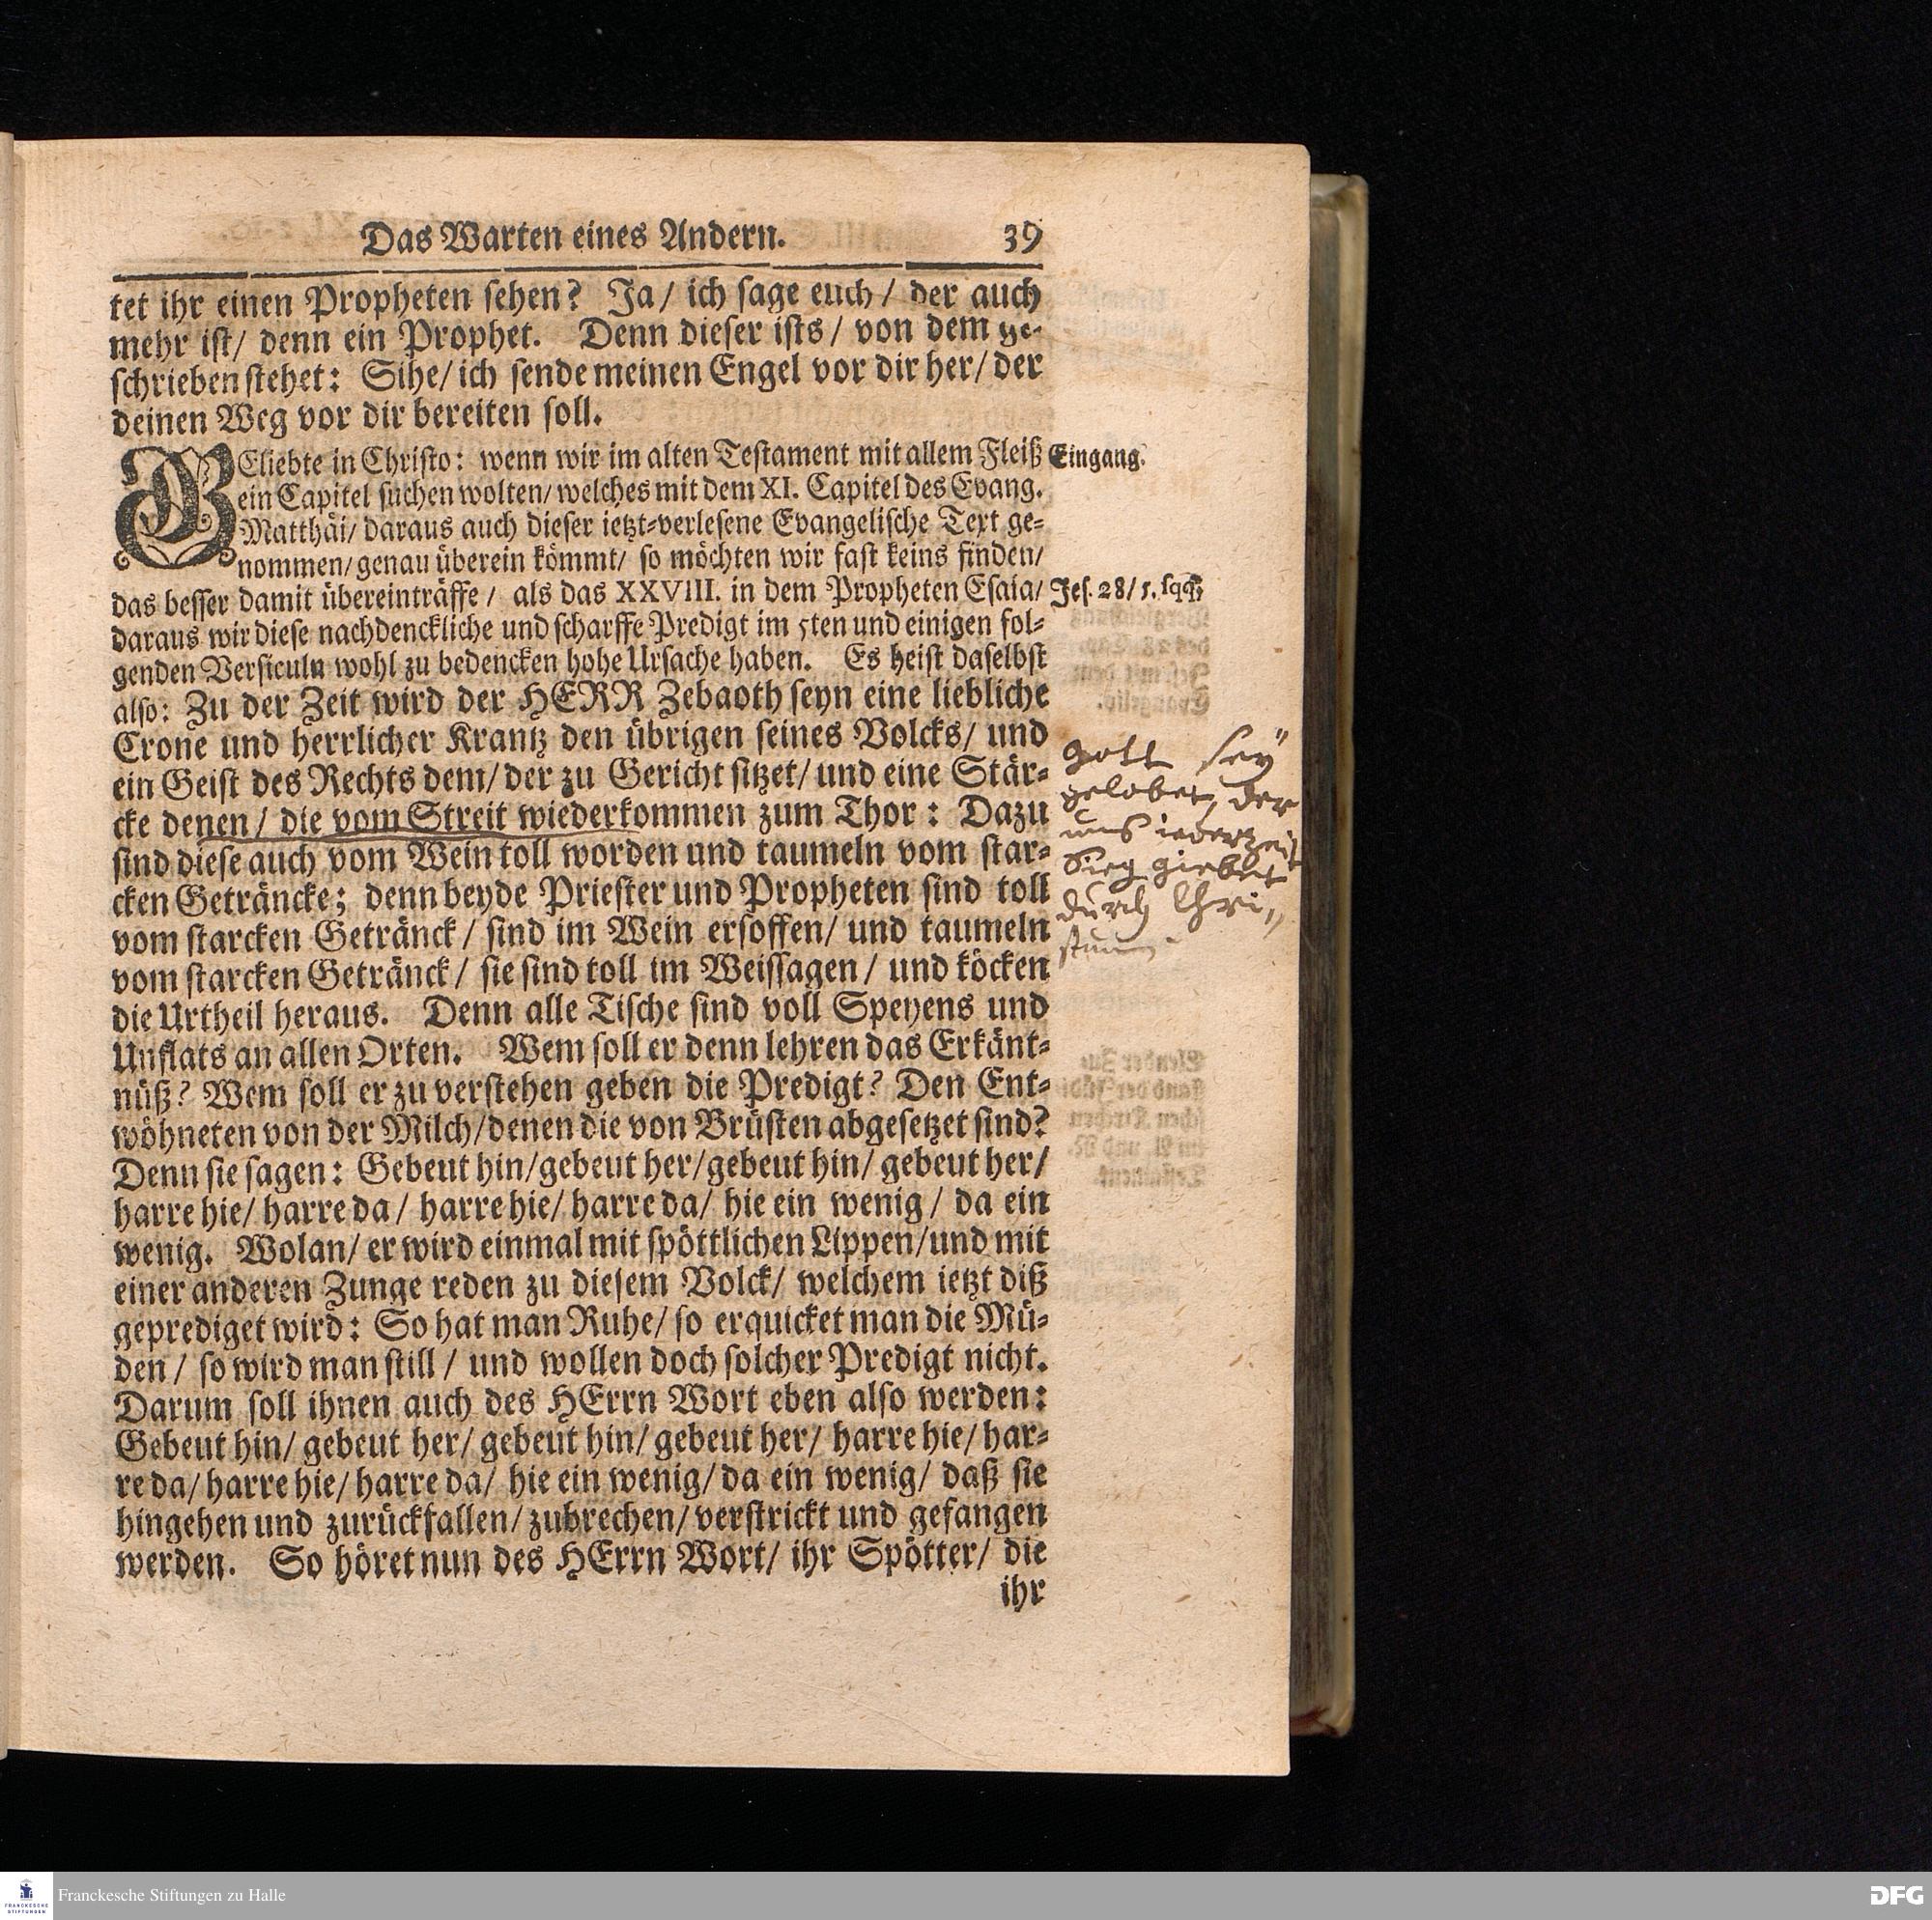 Das Warten eines Andern. 39
tet ihr einen Propheten sehen? Ja/ ich sage euch/ der auch
mehr ist/ denn ein Prophet. Denn dieser ists/ von dem ge-
schrieben stehet: Sihe/ ich sende meinen Engel vor dir her/ der
deinen Weg vor dir bereiten soll.
GEliebte in Christo: wenn wir im alten Testament mit allem Fleiß
Eingang.
ein Capitel suchen wolten/ welches mit dem XI. Capitel des Evang.
Matthäi/ daraus auch dieser ietzt-verlesene Evangelische Text ge-
nommen/ genau überein kömmt/ so möchten wir fast keins finden/
das besser damit übereinträffe/ als das XXVIII. in dem Propheten Esaia/
Jes. 28/5. sqq.
daraus wir diese nachdenckliche und scharffe Predigt im 5ten und einigen fol-
genden Versiculn wohl zu bedencken hohe Ursache haben. Es heist daselbst
also: Zu der Zeit wird der HERR Zebaoth seyn eine liebliche
Crone und herrlicher Krantz den übrigen seines Volcks/ und
ein Geist des Rechts dem/ der zu Gericht sitzet/ und eine Stär-
cke denen/ die vom Streit wiederkommen zum Thor: Dazu
sind diese auch vom Wein toll worden und taumeln vom star-
cken Geträncke; denn beyde Priester und Propheten sind toll
vom starcken Geträncke/ sind im Wein ersoffen/ und taumeln
vom starcken Geträncke/ sie sind toll im Weissagen/ und köcken
die Urtheil heraus. Denn alle Tische sind voll Speyens und
Unflats an allen Orten. Wem soll er denn lehren das Erkänt-
nüß? Wem soll er zu verstehen geben die Predigt? Den Ent-
wöhneten von der Milch/ denen die von Brüsten abgesetzet sind?
Denn sie sagen: Gebeut hin/ gebeut her/ gebeut hin/ gebeut her/
harre hie/ harre da/ harre hie/ harre da/ hie ein wenig/ da ein
wenig. Wolan/ er wird einmal mit spöttlichen Lippen/ und mit
einer anderen Zunge reden zu diesem Volck/ welchem ietzt diß
geprediget wird: So hat man Ruhe/ so erquicket man die Mü-
den/ so wird man still/ und wollen doch solcher Predigt nicht.
Darum soll ihnen auch des HErrn Wort eben also werden:
Gebeut hin/ gebeut her/ gebeut hin/ gebeut her/ harre hie/ har-
re da/ harre hie/ harre da/ hie ein wenig/ da ein wenig/ daß sie
hingehen und zurückfallen/ zubrechen/ verstrickt und gefangen
werden. So höret nun des HErrn Wort/ ihr Spötter/ die
ihr
Gott seÿ
gelobet, der
uns iederzeit
Sieg giebet
durch Chri„
stum
Franckesche Stiftungen zu Halle
FRANCKESCHE
STIFTUNGEN
DFG